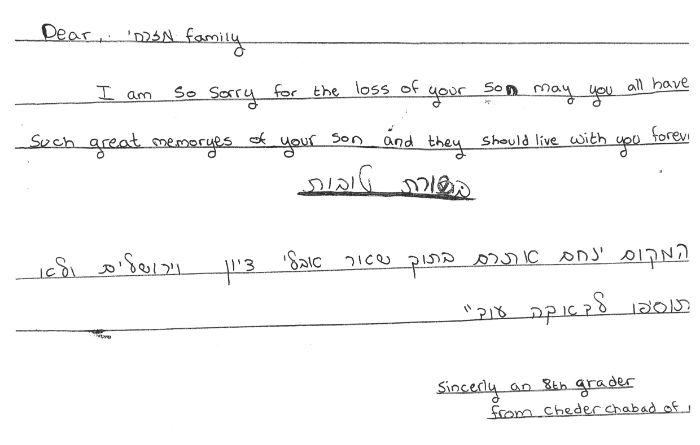 Dear, מזרחי family
I am so sorry for the loss of your son may you all have
such great memoryes of your son and they should live with you forever
בשורת טובות
המקום ינחם אתכם בתוך שאור אבלי ציון וירושלים ולא
תוסיפו לדאבה עוד"
Sincerly an 8th grader
from cheder chabad of